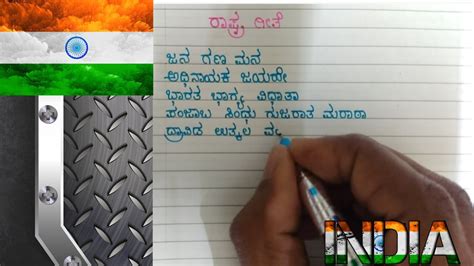 ರಾಷ್ಟ್ರ ಗೀತೆ
ಜನ ಗಣ ಮನ
ಅಧಿನಾಯಕ ಜಯಹೇ
ಭಾರತ ಭಾಗ್ಯ ವಿಧಾತಾ
ಪಂಜಾಬ ಸಿಂಧು ಗುಜರಾತ ಮರಾಠಾ
ದ್ರಾವಿಡ ಉತ್ಕಲ
INDIA